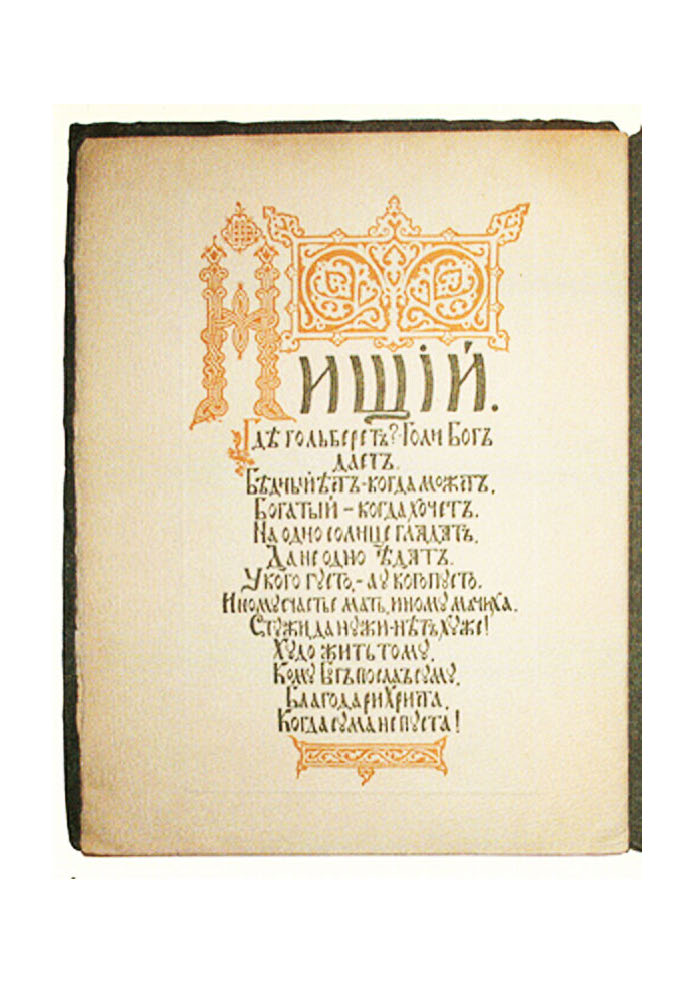 Нищій.
Гдѣ голь беретъ? Голи Богъ
даетъ.
Бѣдный ѣстъ - когда можетъ,
Богатый - когда хочетъ.
На одно солнце глядятъ,
Да не одно ѣдятъ.
У кого густо, - а у кого пусто.
Иному счастье мать, иному мачиха.
Стужи да нужи - нѣтъ хуже!
Худо жить тому,
Кому Богъ послалъ суму.
Благодари Христа,
Когда сума не пуста!